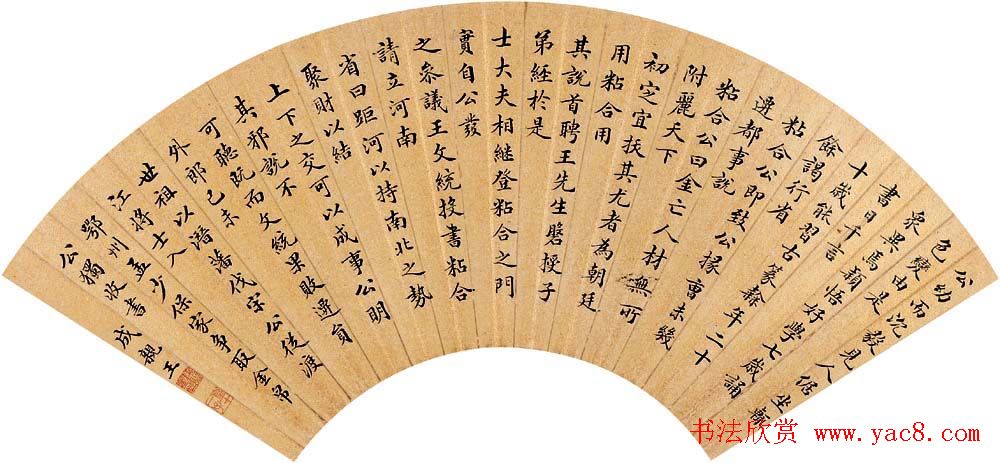 公幼而沉毅見人倨坐輒
色變由是
衆異焉穎悟好學七歲誦
書日千言
十歲能習古篆隸年二十
餘謁行省
粘合公公即致公掾曹未幾
遷都事說
粘合公曰金亡人材無所
附麗天下
初定宜扶其尤者為朝廷
用粘合用
其說首聘王先生磐授子
弟經於是
士大夫相繼登粘合之門
實自公發
之參議王文統投書粘合
請立河南
省曰距河以持南北之勢
聚財以結
上下之交可以成事公明
其邪說不
可聽既而文統果敗逆負
外郎己未
世祖以潛藩伐宋公從渡
江將士入
鄂州孟少保家爭取金帛
公獨收書
成親王
书法欣赏 www.yac8.com